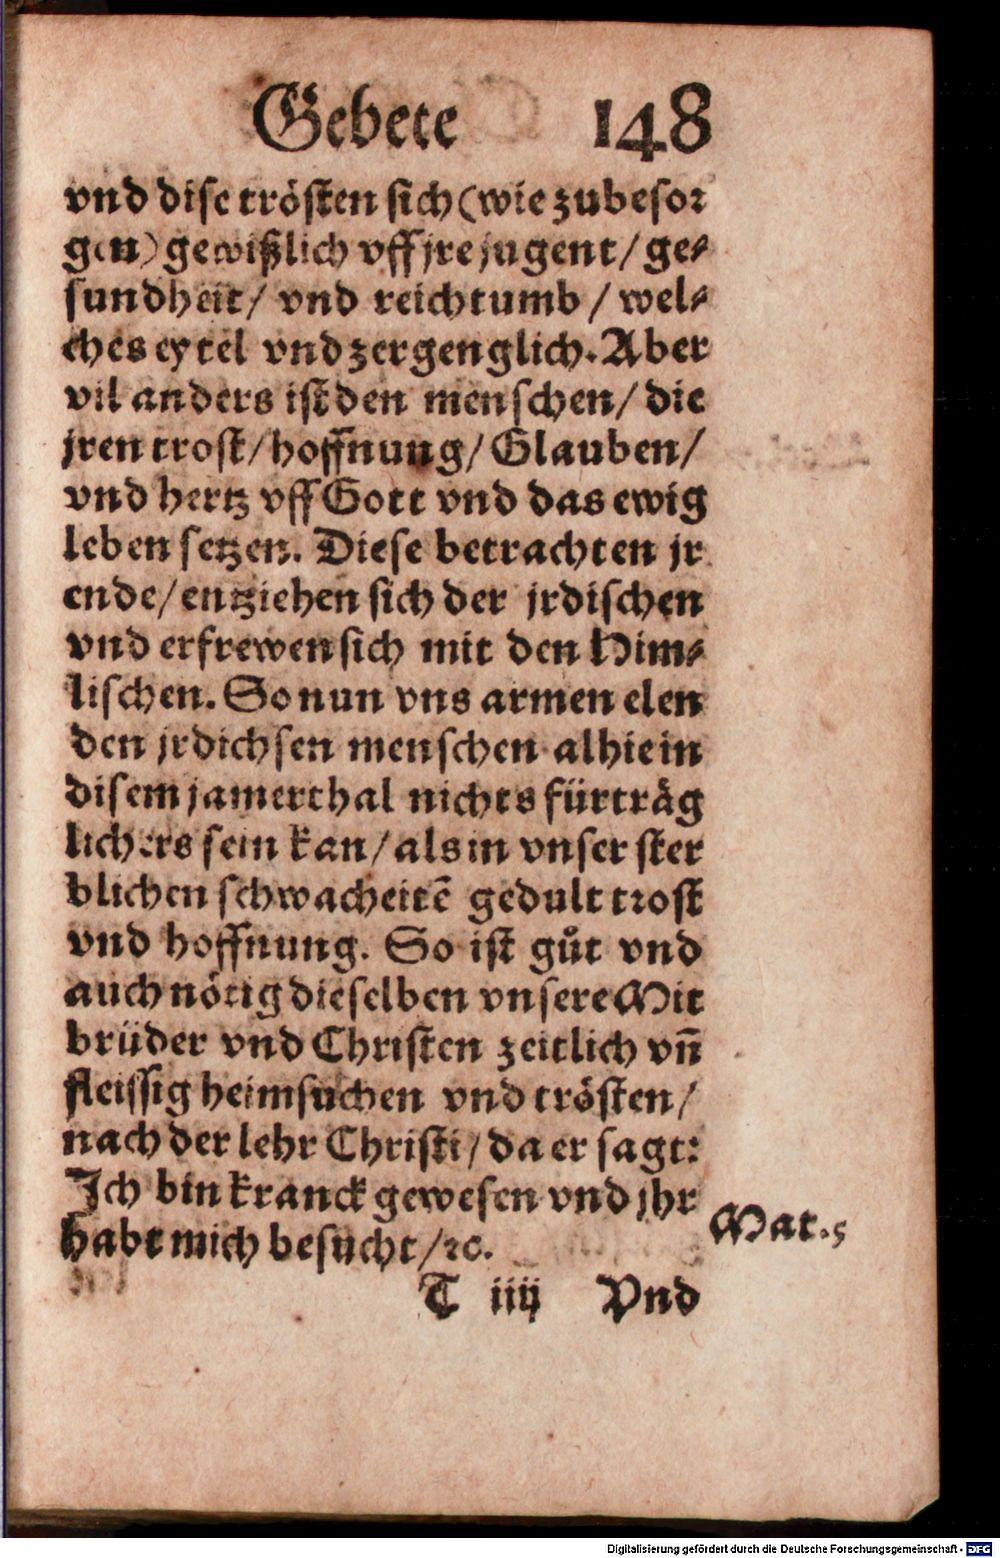 Gebete 148
vnd dise trösten sich (wie zubesor
gen) gewißlich vff jre jugent / ge⸗
sundheit / vnd reichtumb / wel⸗
ches eytel vnd zergenglich. Aber
vil anders ist den menschen / die
jren trost / hoffnung / Glauben /
vnd hertz vff Gott vnd das ewig
leben setzen. Diese betrachten jr
ende / entziehen sich der jrdischen
vnd erfrewen sich mit den Him⸗
lischen. So nun vns armen elen
den jrdichsen menschen alhie in
disem jamerthal nichts fürträg
lichers sein kan / als in vnser ster
blichen schwacheitē gedult trost
vnd hoffnung. So ist gůt vnd
auch nötig dieselben vnsere Mit
brüder vnd Christen zeitlich vn̄
fleissig heimsuchen vnd trösten /
nach der lehr Christi / da er sagt:
Ich bin kranck gewesen vnd jhr
habt mich besucht / ꝛc.
Mat. 5
T iiij Vnd
Digitalisierung gefördert durch die Deutsche Forschungsgemeinschaft - DFG